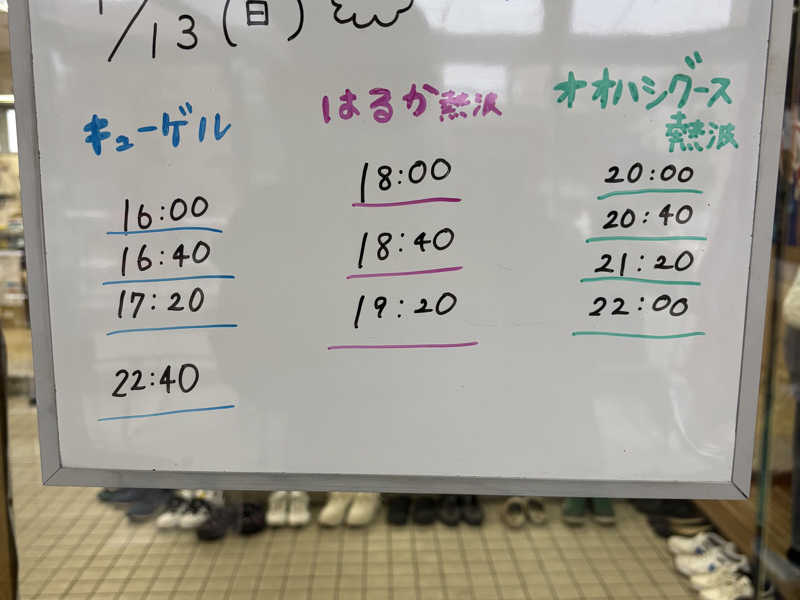 /13(日)
キューゲル
16:00
16:40
17:20
22:40
はるか熱波
18:00
18:40
19:20
オオハシグース
熱波
20:00
20:40
21:20
22:00